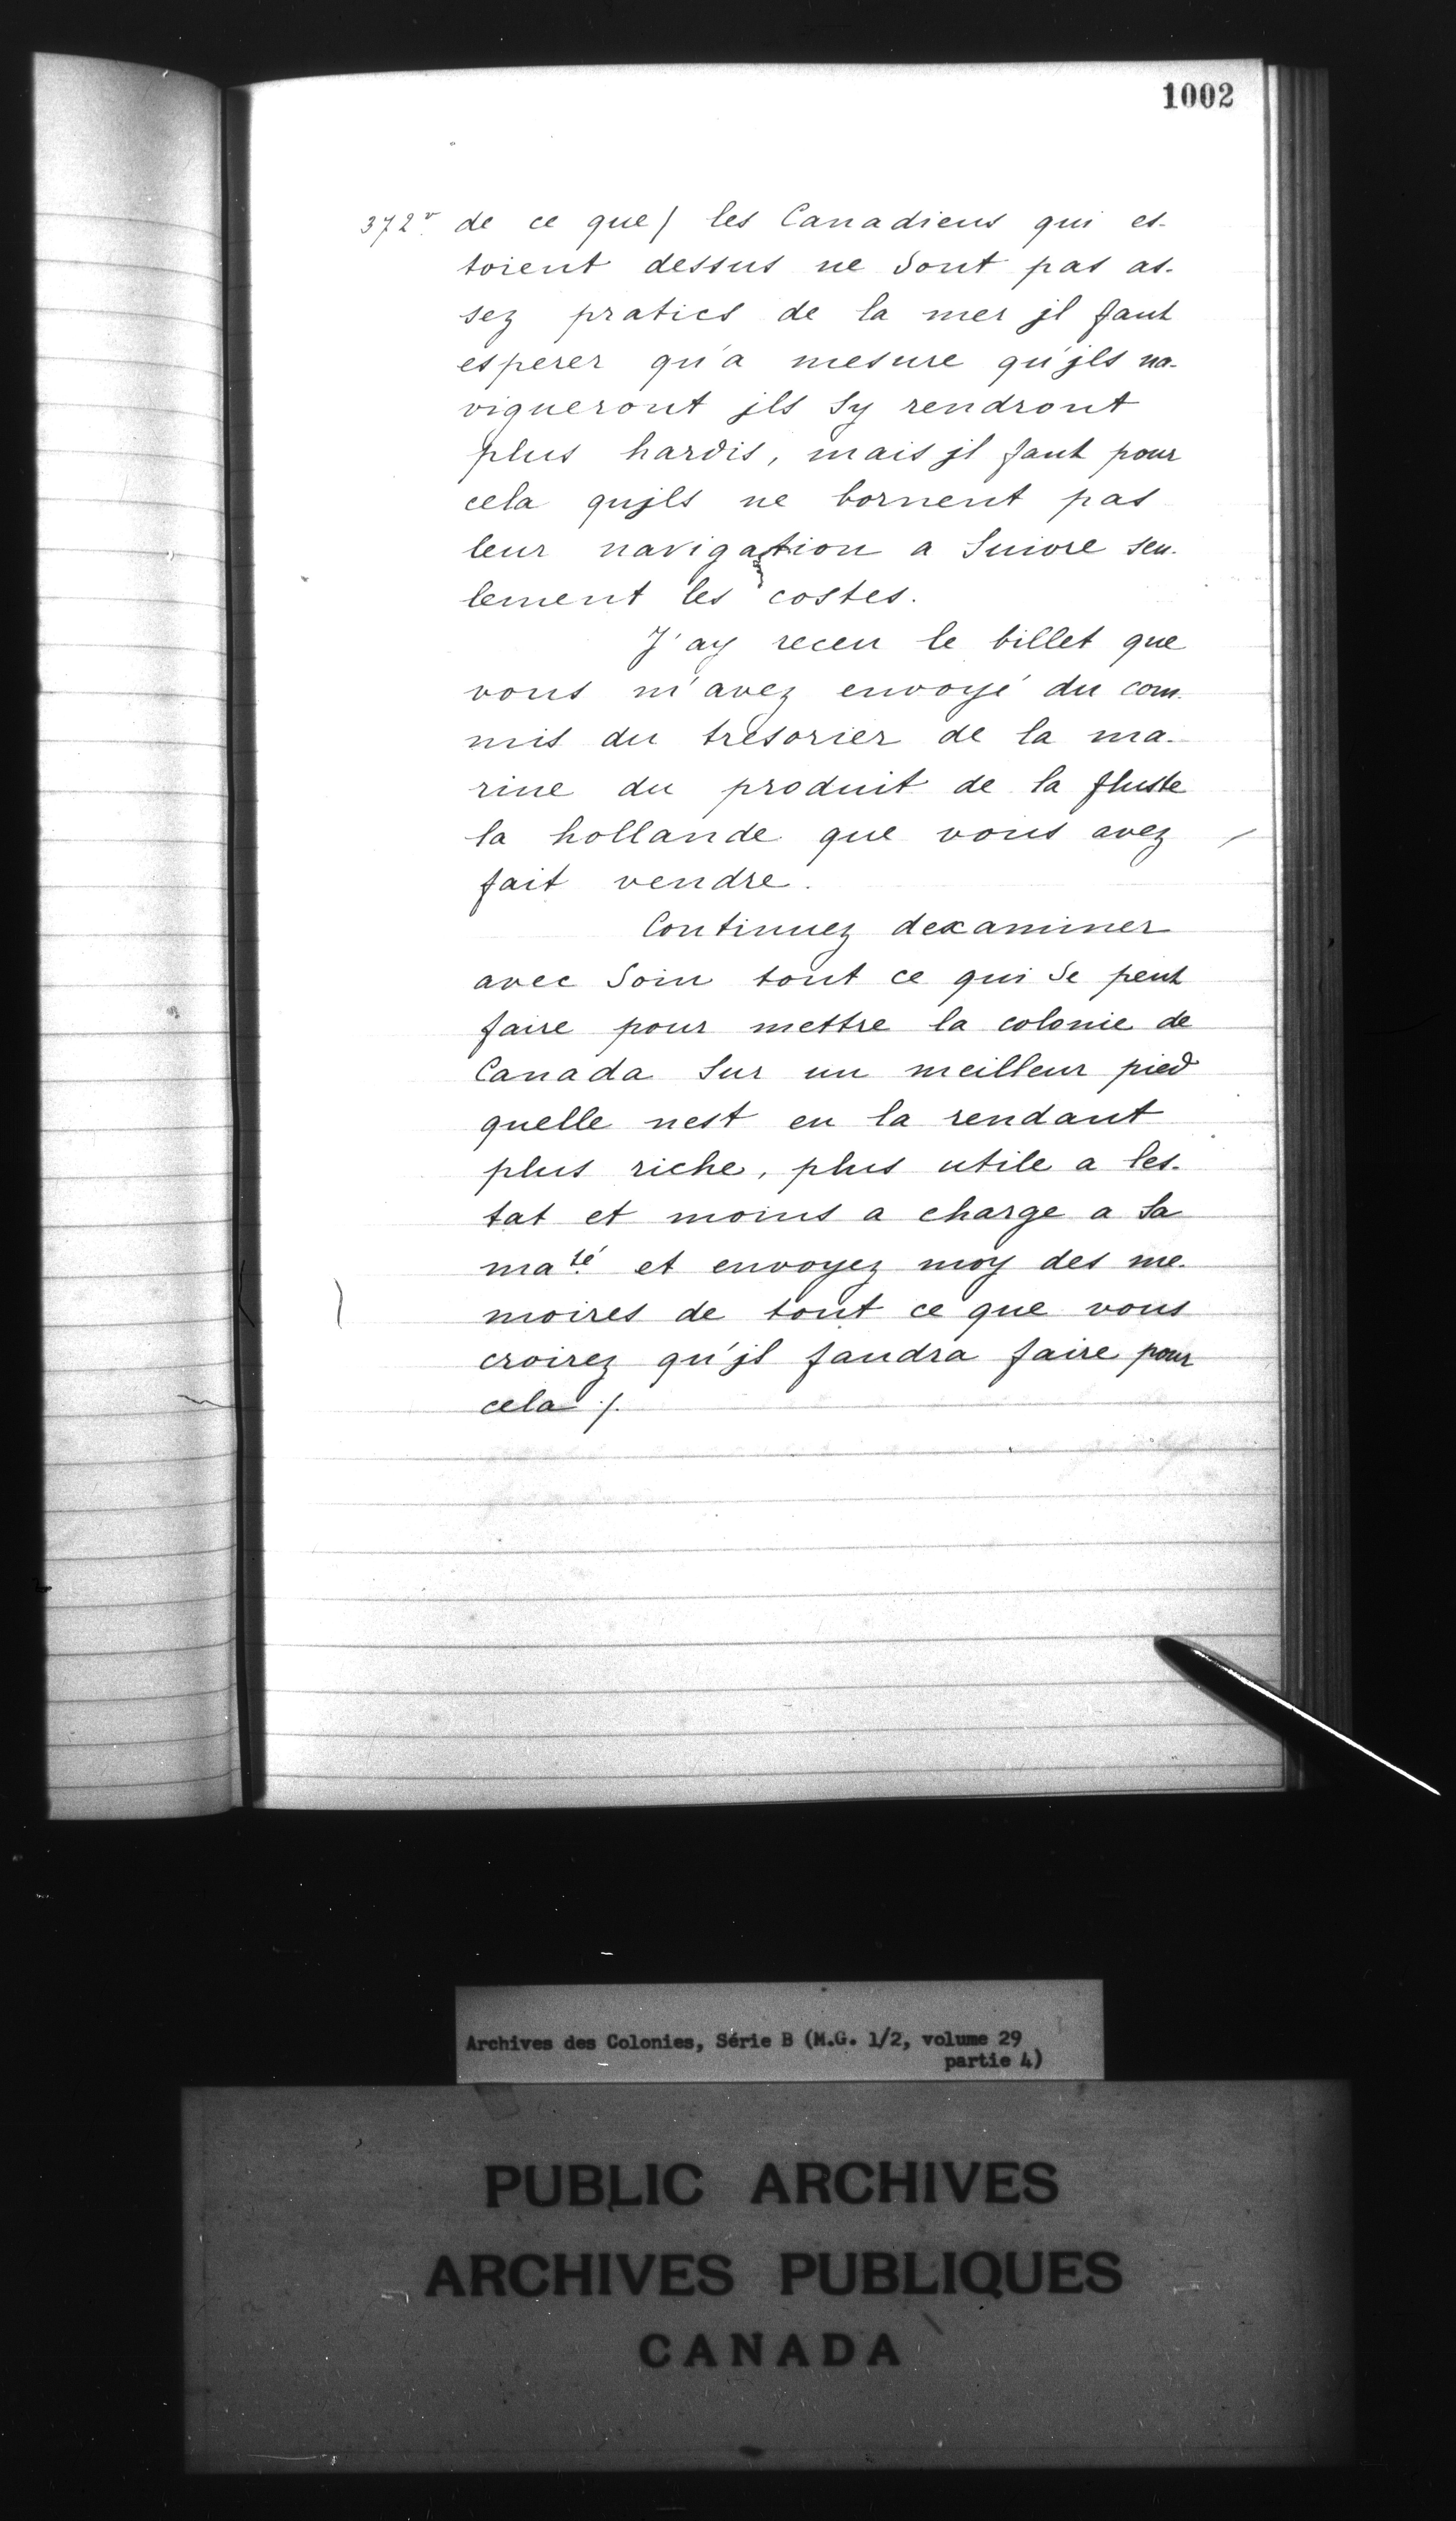 1002
372v. de ce que/ les Canadiens qui es-
toient dessus ne Sont pas as-
sez pratics de la mer jl faut
esperer qu'a mesure qu'jls na-
vigueront jls Sy rendront
plus hardis, mais jl faut pour
cela qujls ne bornent pas
leur navigation a Suivre seu-
lement les costes.
J'ay receu le billet que
vous m'avez envoyé du com-
mis du tresorier de la ma-
rine du produit de la fluste
la hollande que vous avez
fait vendre.
Continuez dexaminer
avec Soin tout ce qui Se peut
faire pour mettre la colonie de
Canada Sur un meilleur pied
quelle nest en la rendant
plus riche, plus utile a les-
tat et moins a charge a Sa
maté et envoyez moy des me-
moires de tout ce que vous
croirez qu'jl faudra faire pour
cela /.
Archives des Colonies, Série B (M.G. 1/2, volume 29
partie 4)
PUBLIC ARCHIVES
ARCHIVES PUBLIQUES
CANADA